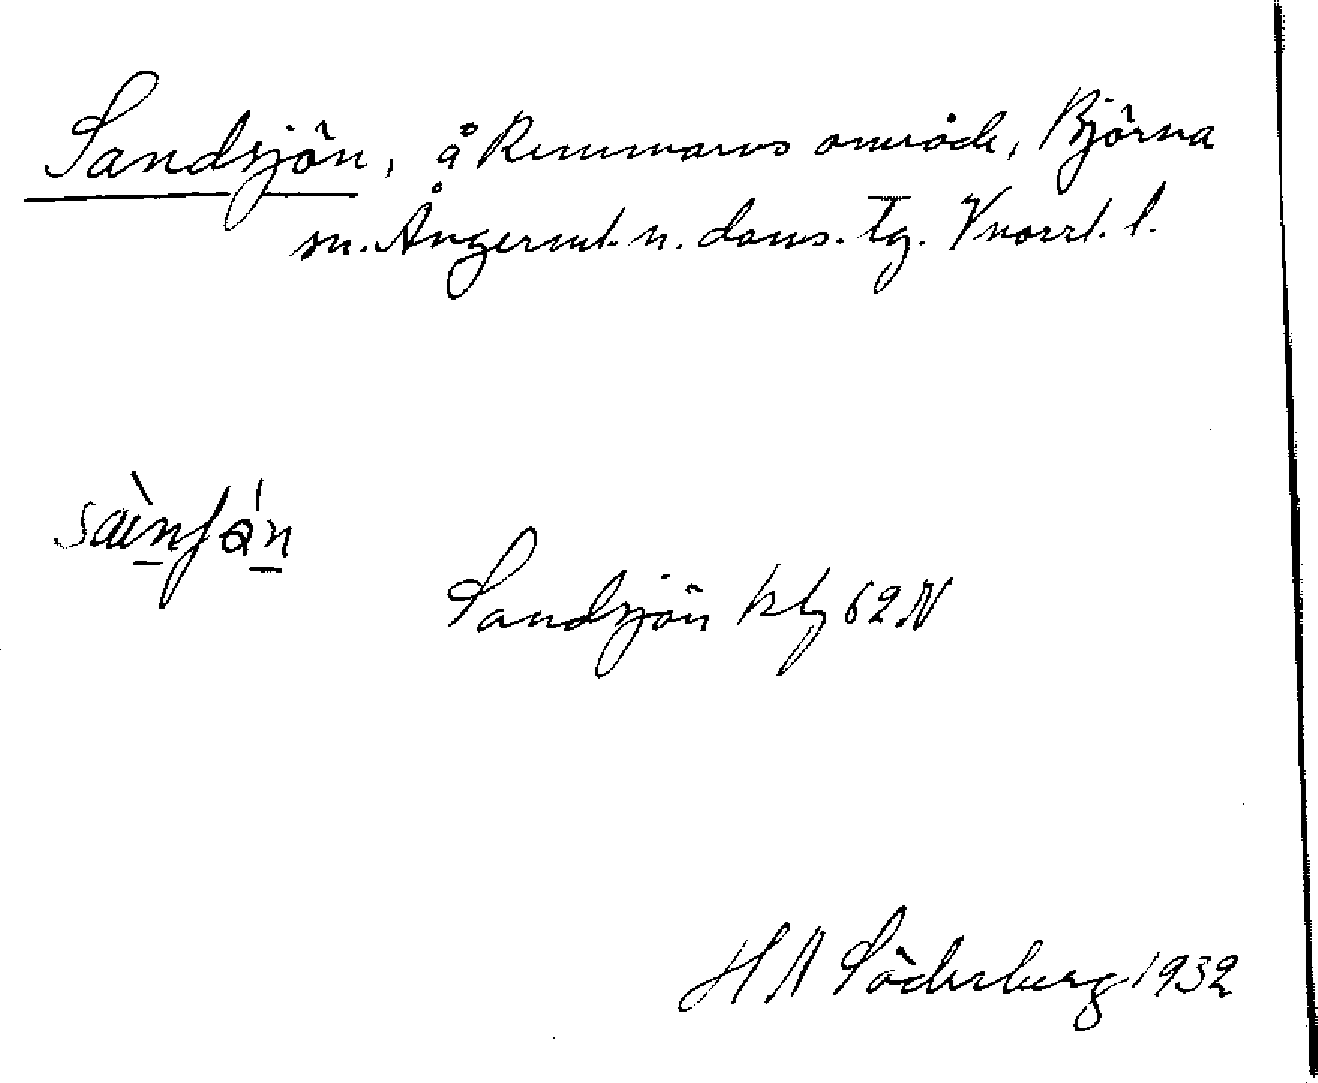 Sandsjön, å Remmarns område, Björna
sn. Ångerml. n. doms. tg. Vnorrl. l.
Sandsjön kbl 62 N
H A Söderberg 1932